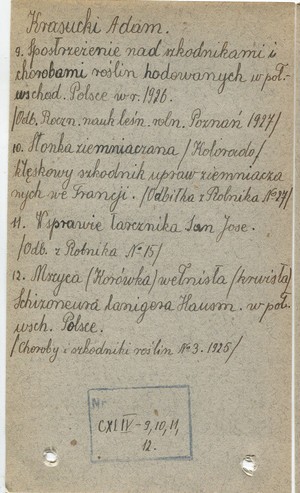 Krasucki Adam.
9. Spostrzeżenie nad szkodnikami i
chorobami roślin hodowanych w poł.-
wschod. Polsce w r. 1926.
/Odb. Roczn. nauk leśn. roln. Poznań 1927/
10. Stonka ziemniaczana /Kolorado/
klęskowy szkodnik upraw ziemniacza
nych we Francji. /Odbitka z Rolnika № 27/
11. W sprawie tarcznika San Jose.
/Odb. z Rolnika № 15/
12. Mszyca /Korówka/ wełnista /krwista/
Schizoneura lanigera Hausm. w poł.
wsch. Polsce.
/Choroby i szkodniki roślin № 3. 1926/
Nr
CXLIV - 9, 10, 11,
12.